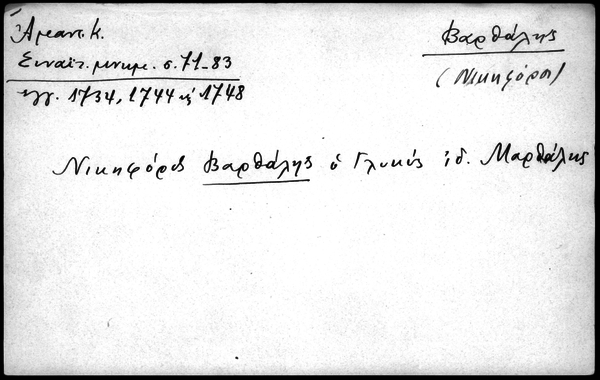 Ἀμαντ. Κ.
Σιναϊτ. μνημ. σ. 71-83
ἔγγ. 1734, 1744 κ̓ 1748
Βαρθάλης
(Νικηφόρος)
Νικηφόρος Βαρθάλης ὁ Γλυκύς ἰδ. Μαρθάλης